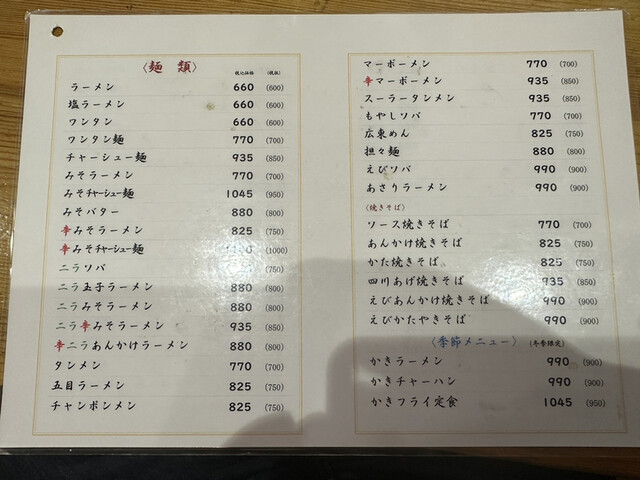 〈麺 類〉 税込価格 (税抜)
ラーメン 660 (600)
塩ラーメン 660 (600)
ワンタン 660 (600)
ワンタン麺 770 (700)
チャーシュー麺 935 (850)
みそラーメン 770 (700)
みそチャーシュー麺 1045 (950)
みそバター 880 (800)
辛みそラーメン 825 (750)
辛みそチャーシュー麺 (1000)
ニラソバ (750)
ニラ玉子ラーメン 880 (800)
ニラみそラーメン 880 (800)
ニラ辛みそラーメン 935 (850)
辛ニラあんかけラーメン 880 (800)
タンメン 770 (700)
五目ラーメン 825 (750)
チャンポンメン 825 (750)
マーボーメン 770 (700)
辛マーボーメン 935 (850)
スーラータンメン 935 (850)
もやしソバ 770 (700)
広東めん 825 (750)
担々麺 880 (800)
えびソバ 990 (900)
あさりラーメン 990 (900)
〈焼きそば〉
ソース焼きそば 770 (700)
あんかけ焼きそば 825 (750)
かた焼きそば 825 (750)
四川あげ焼きそば 935 (850)
えびあんかけ焼きそば 990 (900)
えびかたやきそば 990 (900)
〈季節メニュー〉 (冬季限定)
かきラーメン 990 (900)
かきチャーハン 990 (900)
かきフライ定食 1045 (950)